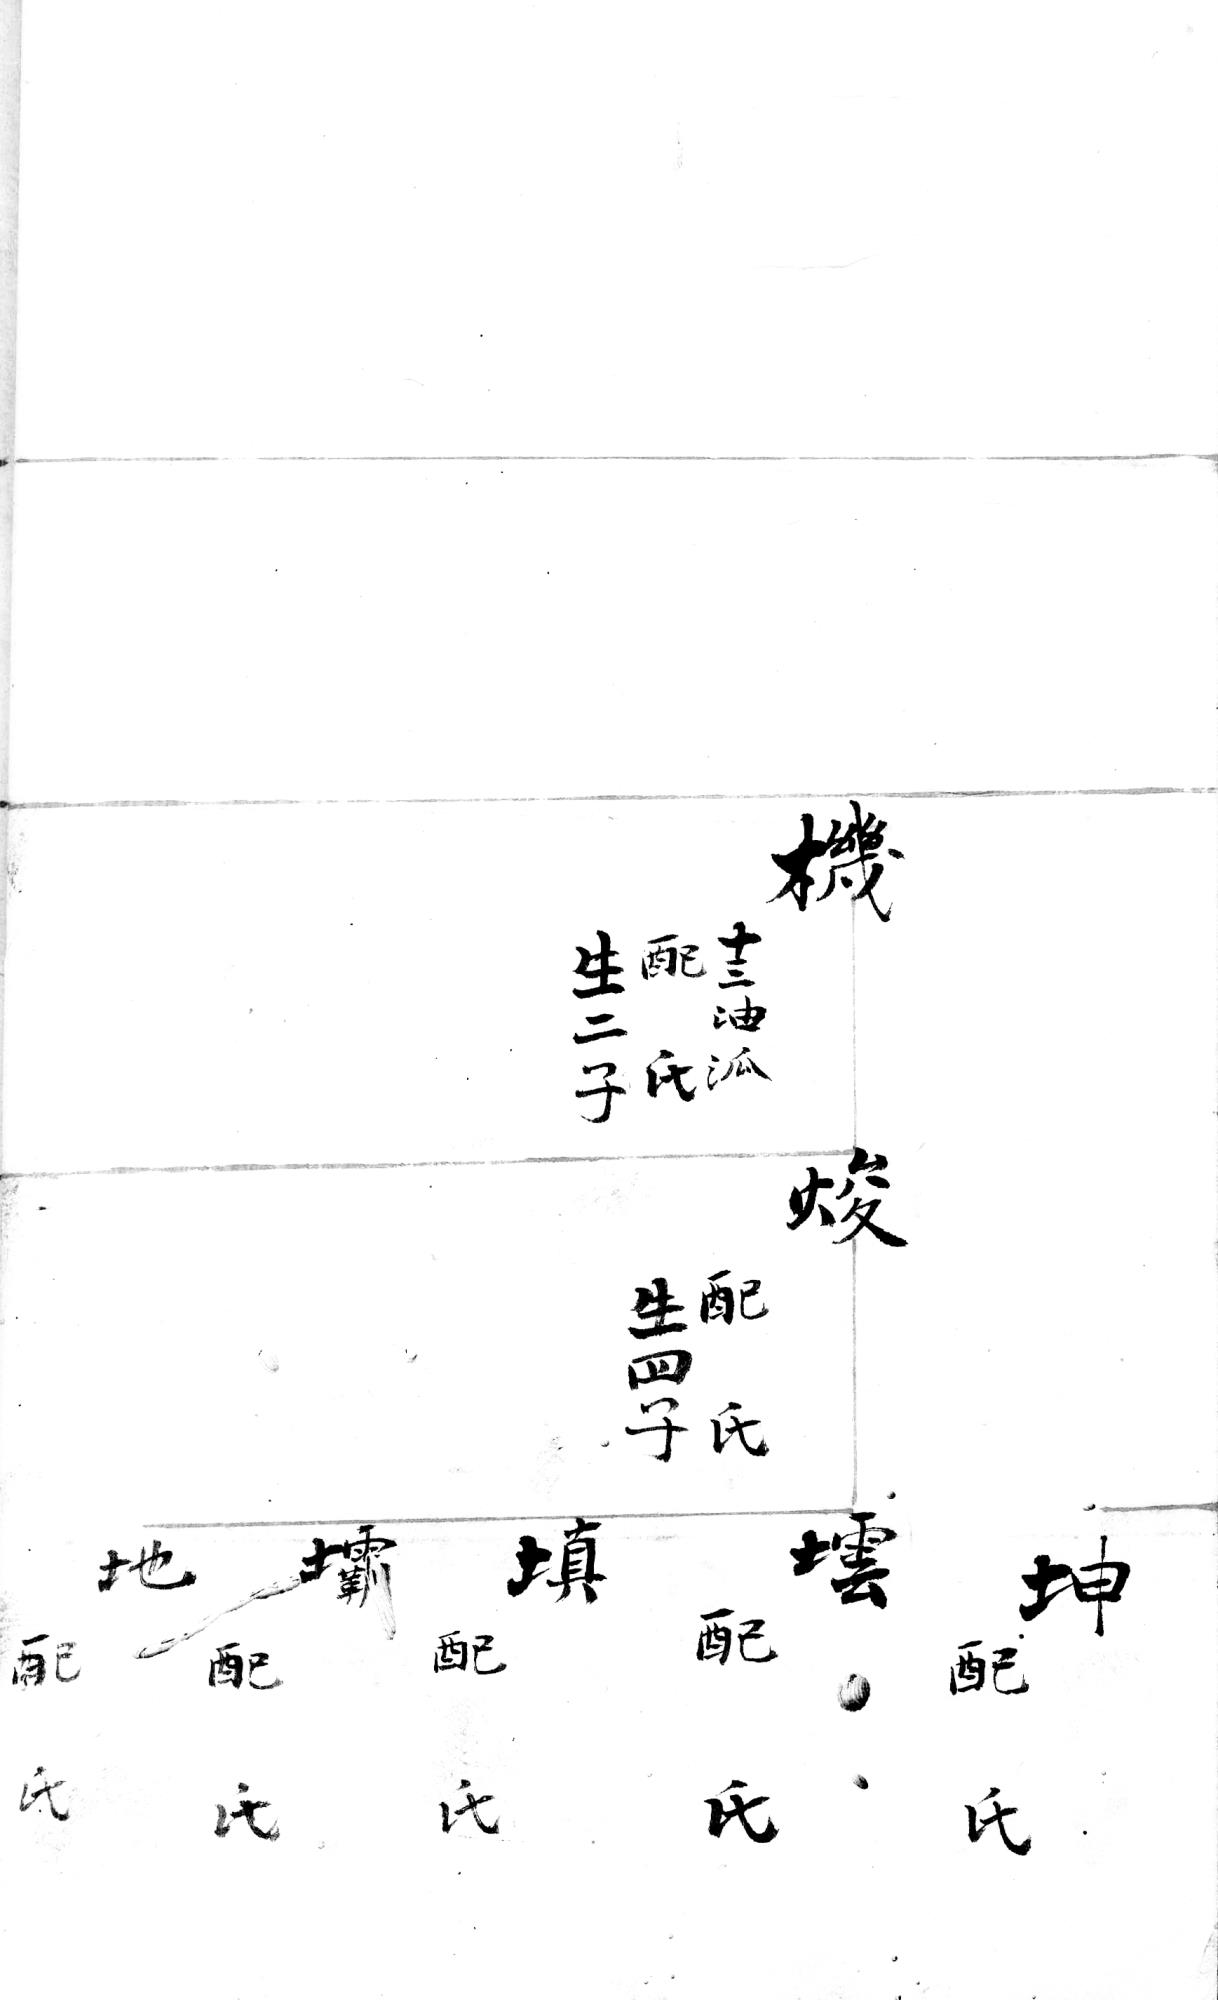 機
十三油派
配 氏
生二子
焌
配 氏
生四子
坤
配 氏
壜
配 氏
填
配 氏
壩
配 氏
地
配 氏